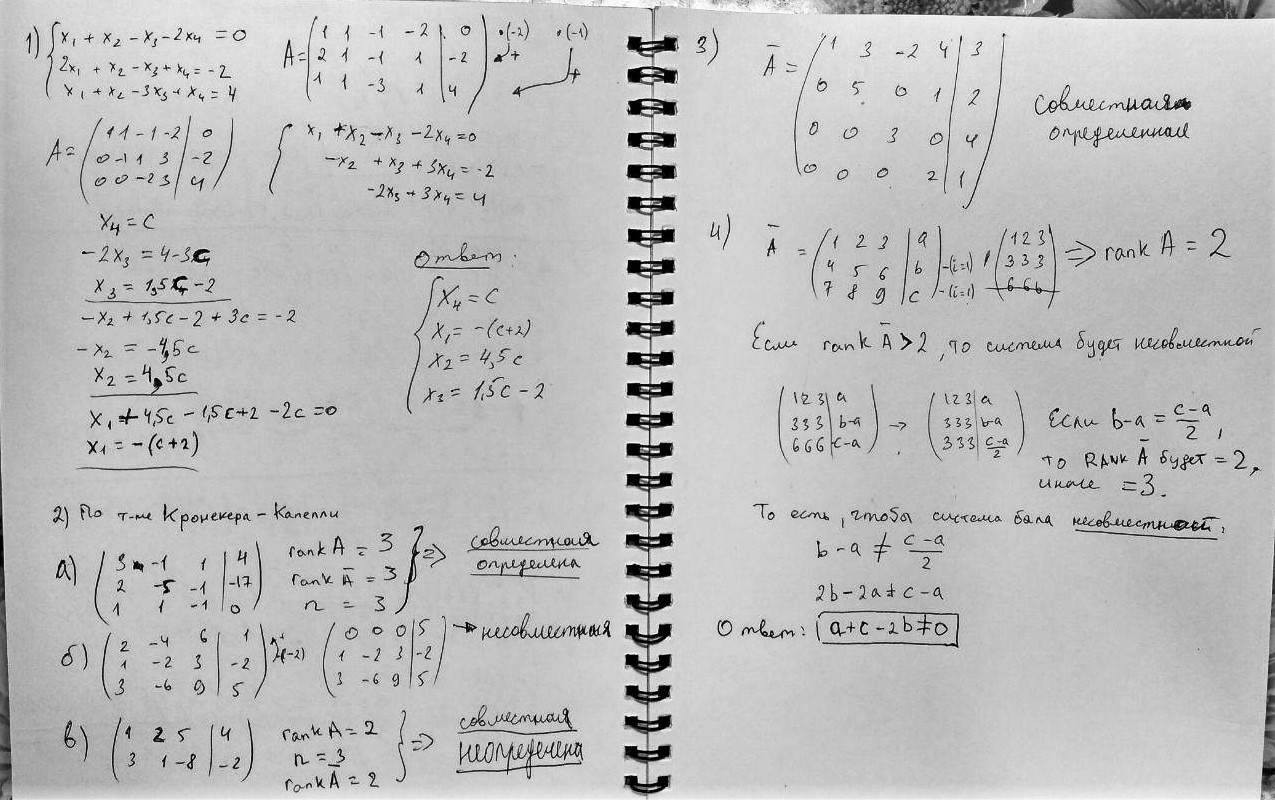 1) { x₁ + x₂ - x₃ - 2x₄ = 0
2x₁ + x₂ - x₃ + x₄ = -2
x₁ + x₂ - 3x₃ + x₄ = 4
A = ( 1 1 -1 -2 | 0 ) ·(-2) ·(-1)
2 1 -1 1 | -2 +
1 1 -3 1 | 4 +
A = ( 1 1 -1 -2 | 0
0 -1 1 3 | -2
0 0 -2 3 | 4 )
{ x₁ + x₂ - x₃ - 2x₄ = 0
-x₂ + x₃ + 3x₄ = -2
-2x₃ + 3x₄ = 4
x₄ = C
-2x₃ = 4 - 3C
x₃ = 1,5C - 2
-x₂ + 1,5c - 2 + 3c = -2
-x₂ = -4,5c
x₂ = 4,5c
x₁ + 4,5c - 1,5c + 2 - 2c = 0
x₁ = -(c+2)
Ответ:
{ x₄ = C
x₁ = -(c+2)
x₂ = 4,5c
x₃ = 1,5c - 2
2) По т-ме Кронекера - Капелли
а) ( 3 -1 1 | 4
2 -5 -1 | -17
1 1 -1 | 0 )
rank A = 3
rank A̅ = 3
n = 3
} => совместная
определена
б) ( 2 -4 6 | 1
1 -2 3 | -2
3 -6 9 | 5 ) + ·(-2)
( 0 0 0 | 5
1 -2 3 | -2
3 -6 9 | 5 ) → несовместная
в) ( 1 2 5 | 4
3 1 -8 | -2 )
rank A = 2
n = 3
rank A̅ = 2
} => совместная
неопределена
3) A̅ = ( 1 3 -2 4 | 3
0 5 0 1 | 2
0 0 3 0 | 4
0 0 0 2 | 1 )
совместная
определенная
4) A̅ = ( 1 2 3 | a
4 5 6 | b
7 8 9 | c ) -(i=1) -(i=1)
( 1 2 3
3 3 3
6 6 6 ) => rank A = 2
Если rank A̅ > 2, то система будет несовместной
( 1 2 3 | a
3 3 3 | b-a
6 6 6 | c-a )
→ ( 1 2 3 | a
3 3 3 | b-a
3 3 3 | (c-a)/2 )
Если b-a = (c-a)/2,
то RANK A̅ будет = 2,
иначе = 3.
То есть, чтобы система была несовместной,
b - a ≠ (c-a)/2
2b - 2a ≠ c - a
Ответ: a + c - 2b ≠ 0